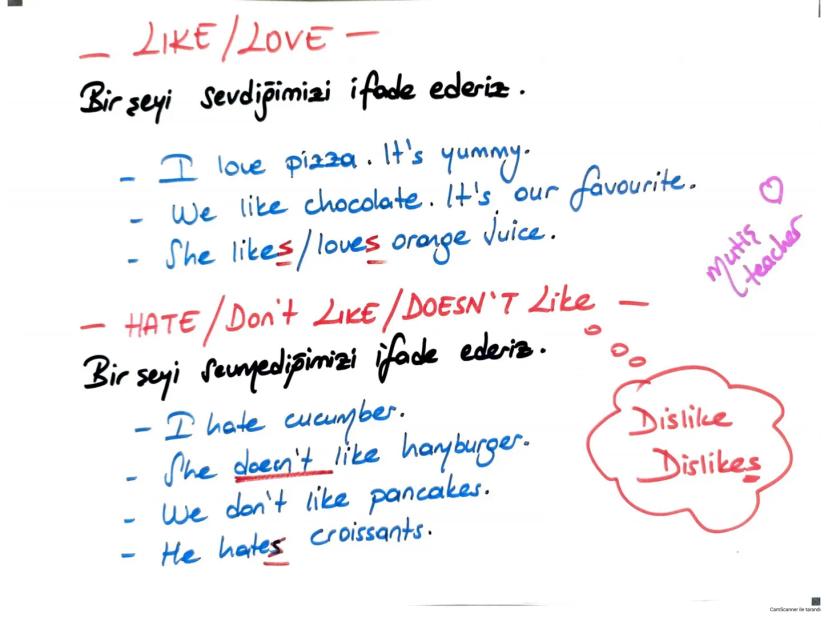 — LIKE/LOVE —
Bir şeyi sevdiğimizi ifade ederiz.
- I love pizza. It's yummy.
- We like chocolate. It's our favourite.
- She likes/loves orange juice.
Mutiş
teacher
— HATE/Don't LIKE/DOESN'T Like —
Bir şeyi sevmediğimizi ifade ederiz.
- I hate cucumber.
- She doesn't like hamburger.
- We don't like pancakes.
- He hates croissants.
Dislike
Dislikes
CamScanner ile tarandı